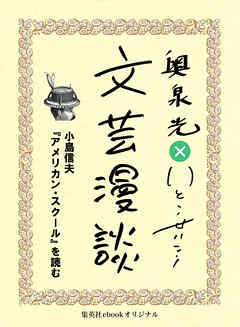 奥泉光×いとうせいこう
文芸漫談
小島信夫
『アメリカン・スクール』を読む
集英社ebookオリジナル